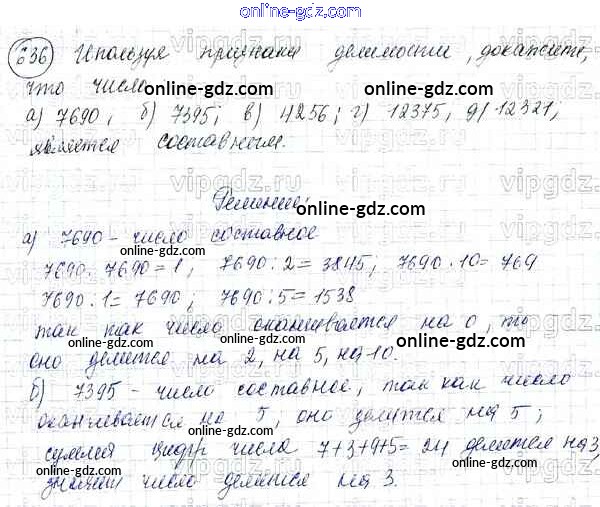 online-gdz.com
636 Используя признаки делимости, докажите,
что число online-gdz.com
а) 7690, б) 7395; в) 4256; г) 12375, д) 12321;
является составным.
Решение:
online-gdz.com
а) 7690 – число составное
7690 : 7690 = 1; 7690 : 2 = 3845; 7690 : 10 = 769
7690 : 1 = 7690; 7690 : 5 = 1538
online-gdz.com
так как число оканчивается на 0, то
оно делится на 2, на 5, на 10.
online-gdz.com
б) 7395 – число составное, так как число
оканчивается на 5, оно делится на 5;
online-gdz.com
сумма цифр числа 7+3+9+5=24 делится на 3,
значит число делится на 3.
online-gdz.com
vipgdz.ru